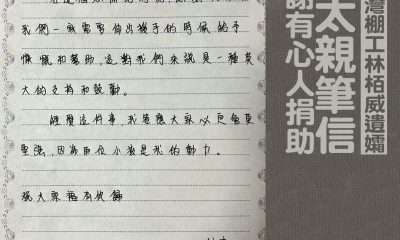 我們一家需要伸出援手的時候給予
慷慨和幫助,這對我們來說是一種莫
大的支持和鼓勵。
經歷這件事,我答應大家以後會更
堅強,因為兩位小孩是我的動力。
祝大家福有攸歸
灣棚工林栢威遺孀
太親筆信
謝有心人捐助